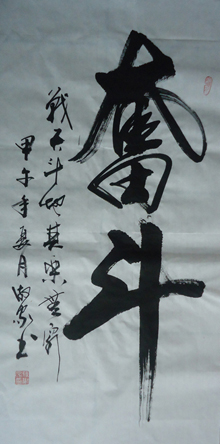 奮斗
战天斗地其乐无穷
甲午年夏月